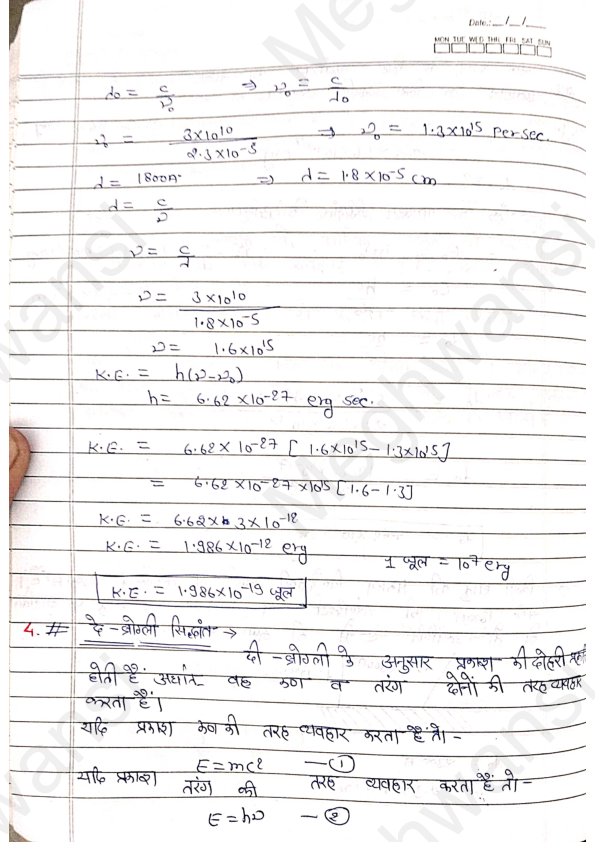 Date.: __/__/__
MON TUE WED THR FRI SAT SUN
λ₀ = c/ν₀ ⇒ ν₀ = c/λ₀
ν₀ = 3×10¹⁰/2.3×10⁻⁵ ⇒ ν₀ = 1.3×10¹⁵ per sec.
λ = 1800A° ⇒ λ = 1.8×10⁻⁵ cm
λ = c/ν
ν = c/λ
ν = 3×10¹⁰/1.8×10⁻⁵
ν = 1.6×10¹⁵
K.E. = h(ν-ν₀)
h = 6.62×10-27 erg sec.
K.E. = 6.62×10-27 [1.6×10¹⁵-1.3×10¹⁵]
= 6.62×10-27×10¹⁵ [1.6-1.3]
K.E. = 6.62× 3×10-12
K.E. = 1.986×10-12 erg
1 जूल = 10⁷ erg
K.E. = 1.986×10-19 जूल
4. # दे-ब्रोग्ली सिद्धांत →
दी-ब्रोग्ली के अनुसार प्रकाश की दोहरी
होती हैं अर्थात वह कण व तरंग दोनों की तरह व्यवहार
करता हैं।
यदि प्रकाश कण की तरह व्यवहार करता हैं तो -
E=mc² — ①
यदि प्रकाश तरंग की तरह व्यवहार करता हैं तो -
E=hν — ②
Meghwansi